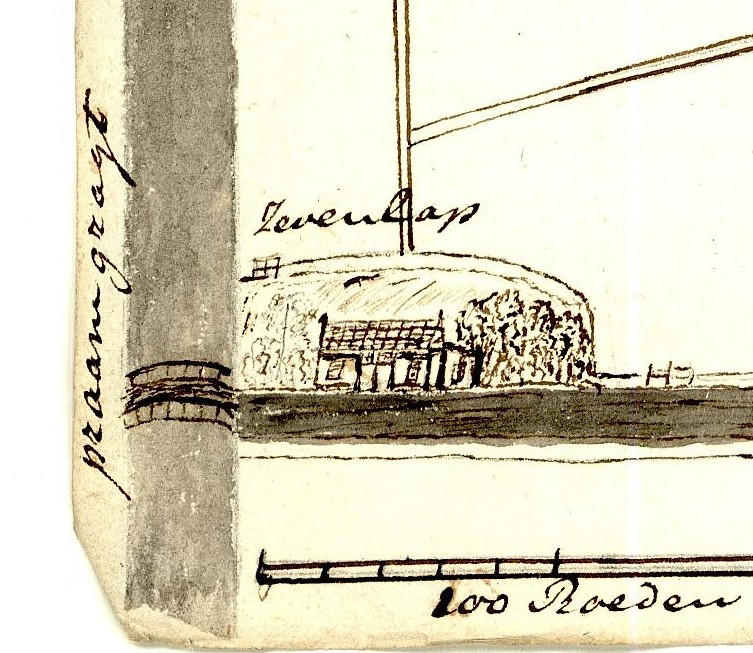 praamgragt
Zevenlap
100 Roeden